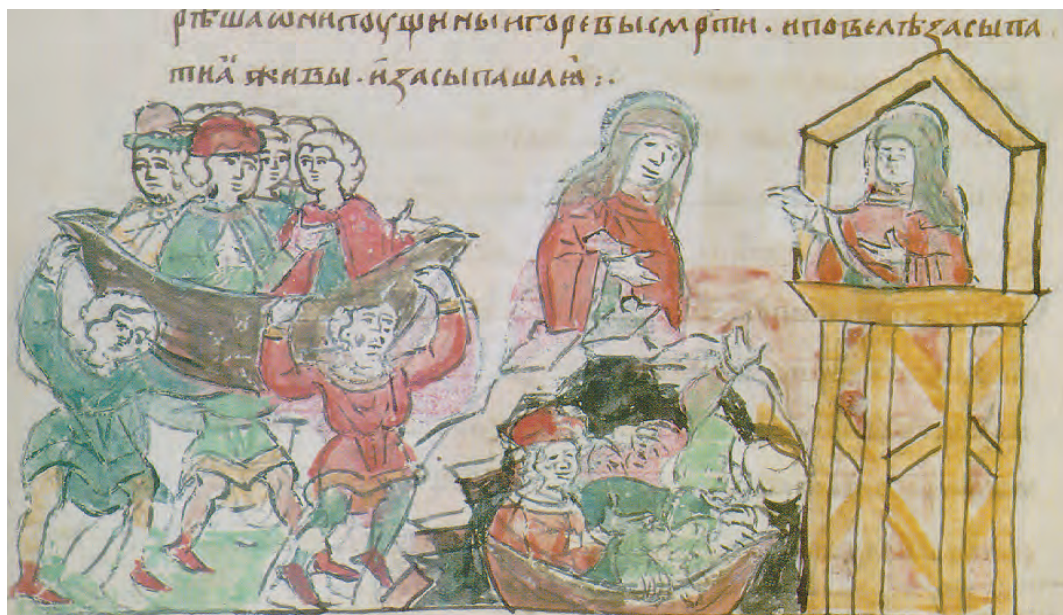 рѣша ѡни поущи ны игоревы смрти · и повелѣ засыпа
ти ӓ живы · и засыпаша ꙗ :·